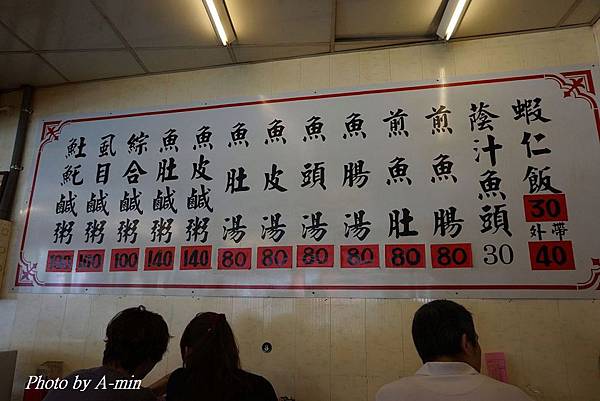 蝦仁飯 30 外帶 40
蔭汁魚頭 30
煎魚腸 80
煎魚肚 80
魚腸湯 80
魚頭湯 80
魚皮湯 80
魚肚湯 80
魚皮鹹粥 140
魚肚鹹粥 140
綜合鹹粥 100
虱目鹹粥
𩵚魠鹹粥
Photo by A-min